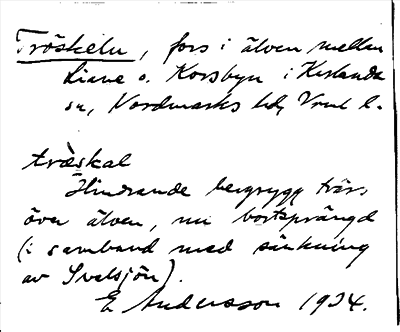 Tröskeln, fors i älven mellan
Liane o. Korsbyn i Karlanda
sn, Nordmarks hd, Vrml l.
træ̀skal
Hindrande bergrygg tvärs
över älven, nu bortsprängd
(i samband med sänkning
av Svelsjön).
E Andersson 1934.